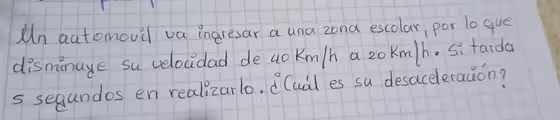 Un automovil va ingresar a una zona escolar, por lo que
disminuye su velocidad de 40 Km/h a 20 Km/h. Si tarda
5 segundos en realizarlo. ¿Cuál es su desaceleración?